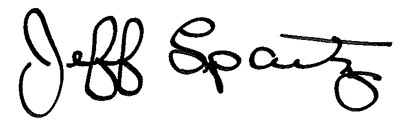 Jeff Spartz